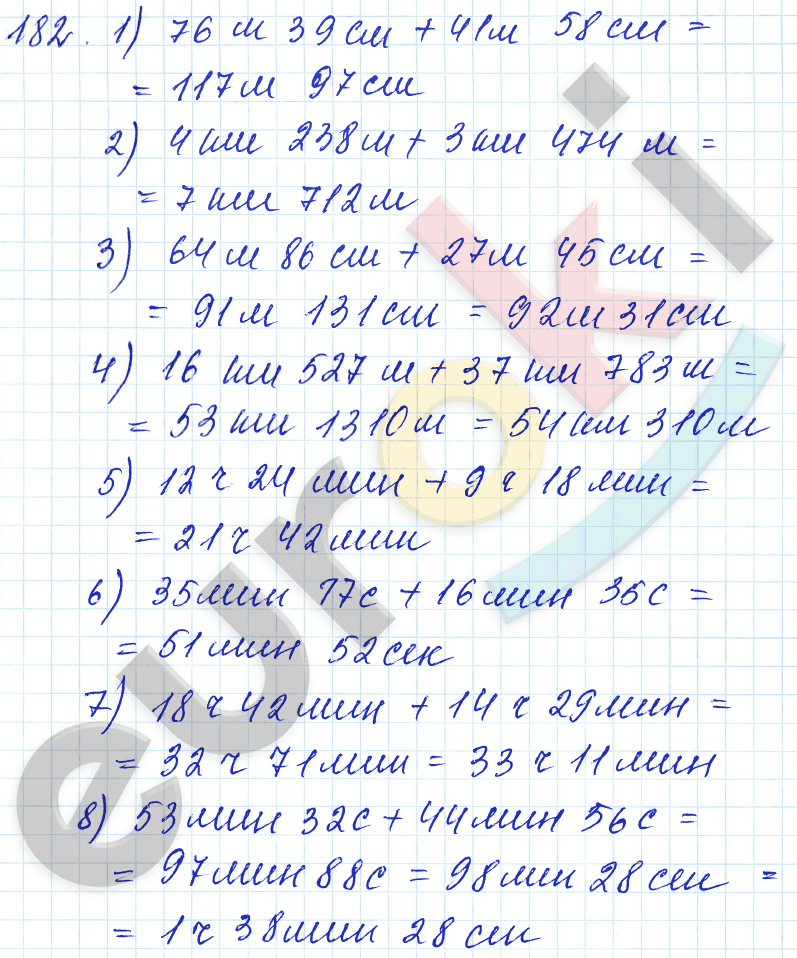 182. 1) 76 м 39 см + 41 м 58 см =
= 117 м 97 см
2) 4 км 238 м + 3 км 474 м =
= 7 км 712 м
3) 64 м 86 см + 27 м 45 см =
= 91 м 131 см = 92 м 31 см
4) 16 км 527 м + 37 км 783 м =
= 53 км 1310 м = 54 км 310 м
5) 12 ч 24 мин + 9 ч 18 мин =
= 21 ч 42 мин
6) 35 мин 17 с + 16 мин 35 с =
= 51 мин 52 сек
7) 18 ч 42 мин + 14 ч 29 мин =
= 32 ч 71 мин = 33 ч 11 мин
8) 53 мин 32 с + 44 мин 56 с =
= 97 мин 88 с = 98 мин 28 сек =
= 1 ч 38 мин 28 сек
euroki